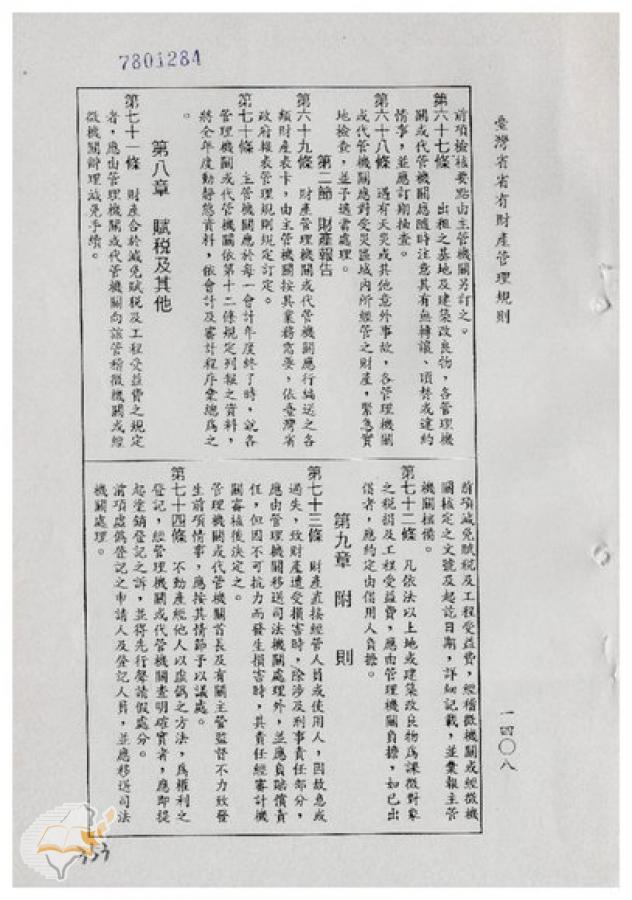 7801284
臺灣省省有財產管理規則
一四〇八
前項檢核要點由主管機關另訂之。
第六十七條　出租之基地及建築改良物，各管理機
關或代管機關應隨時注意其有無轉讓、頂替或違約
情事，並應訂期抽查。
第六十八條　遇有天災或其他意外事故，各管理機關
或代管機關應對受災區域內所經管之財產，緊急實
地檢查，並予適當處理。
第二節　財產報告
第六十九條　財產管理機關或代管機關應行編送之各
類財產表卡，由主管機關按其業務需要，依臺灣省
政府報表管理規則規定訂定。
第七十條　主管機關應於每一會計年度終了時，就各
管理機關或代管機關依第十二條規定列報之資料，
將全年度動靜態資料，依會計及審計程序彙總為之
。
第八章　賦稅及其他
第七十一條　財產合於減免賦稅及工程受益費之規定
者，應由管理機關或代管機關向該管稽徵機關或經
徵機關辦理減免手續。
前項減免賦稅及工程受益費，經稽徵機關或經徵機
關核定之文號及起訖日期，詳細記載，並彙報主管
機關備。
第七十二條　凡依法以土地或建築改良物為課徵對象
之稅捐及工程受益費，應由管理機關負擔，如已出
借者，應約定由借用人負擔。
第九章　附　則
第七十三條　財產直接經管人員或使用人，因故意或
過失，致財產遭受損害時，除涉及刑事責任部分，
應由管理機關移送司法機關處理外，並應負賠償責
任，但因不可抗力而發生損害時，其責任經審計機
關審核後決定之。
管理機關或代管機關首長及有關主管監督不力致發
生前項情事，應按其情節予以議處。
第七十四條　不動產經他人以虛偽之方法，為權利之
登記，經管理機關或代管機關查明確實者，應即提
起塗銷登記之訴，並得先行聲請假處分。
前項虛偽登記之申請人及登記人員，並應移送司法
機關處理。
353